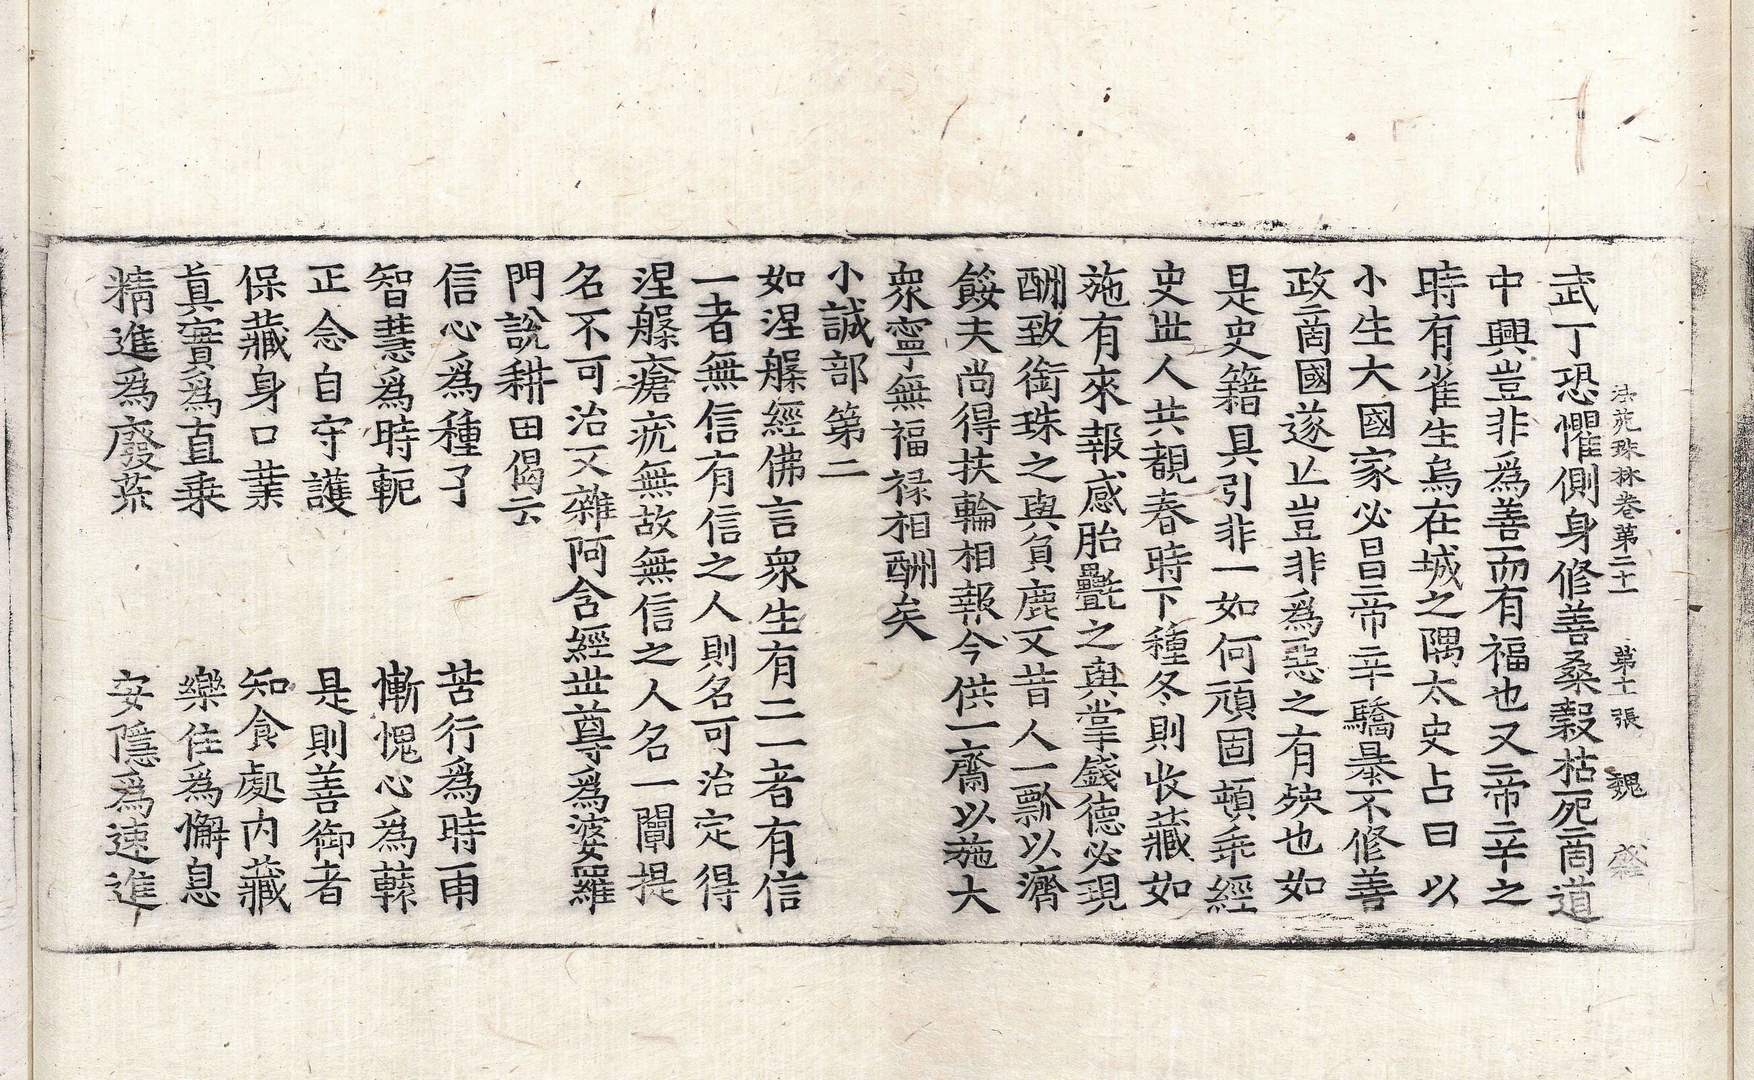 法苑珠林卷第二十一 第十張 魏
武丁恐懼側身修善桑糓枯死啇道
中興豈非爲善而有福也又帝辛之
時有雀生烏在城之隅太史占曰以
小生大國家必昌帝辛驕暴不修善
政啇國遂亾豈非爲惡之有殃也如
是史籍具引非一如何頑固頓乖經
史丗人共覩春時下種冬則收藏如
施有來報感胎㲲之與掌錢德必現
酬致銜珠之與負鹿又昔人一瓢以濟
餧夫尚得扶輪相報今供一齋以施大
衆寧無福禄相酬矣
小誡部第二
如涅槃經佛言衆生有二一者有信
一者無信有信之人則名可治定得
涅槃瘡疣無故無信之人名一闡提
名不可治又雜阿含經丗尊爲婆羅
門說耕田偈云
信心爲種子 苦行爲時雨
智慧爲時軛 慚愧心爲轅
正念自守護 是則善御者
保藏身口業 知食處內藏
真實爲直乘 樂住爲懈息
精進爲廢荒 安隱爲速進